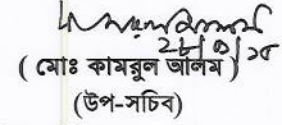 ২৮/৩/১৫
( মোঃ কামরুল আলম )
(উপ-সচিব)